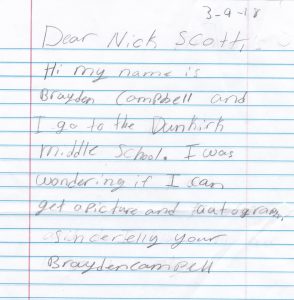 3-9-18
Dear Nick Scott,
Hi my name is
Brayden Campbell and
I go to the Dunkirk
middle School. I was
wondering if I can
get a picture and
sincerelly your
Braydencampell